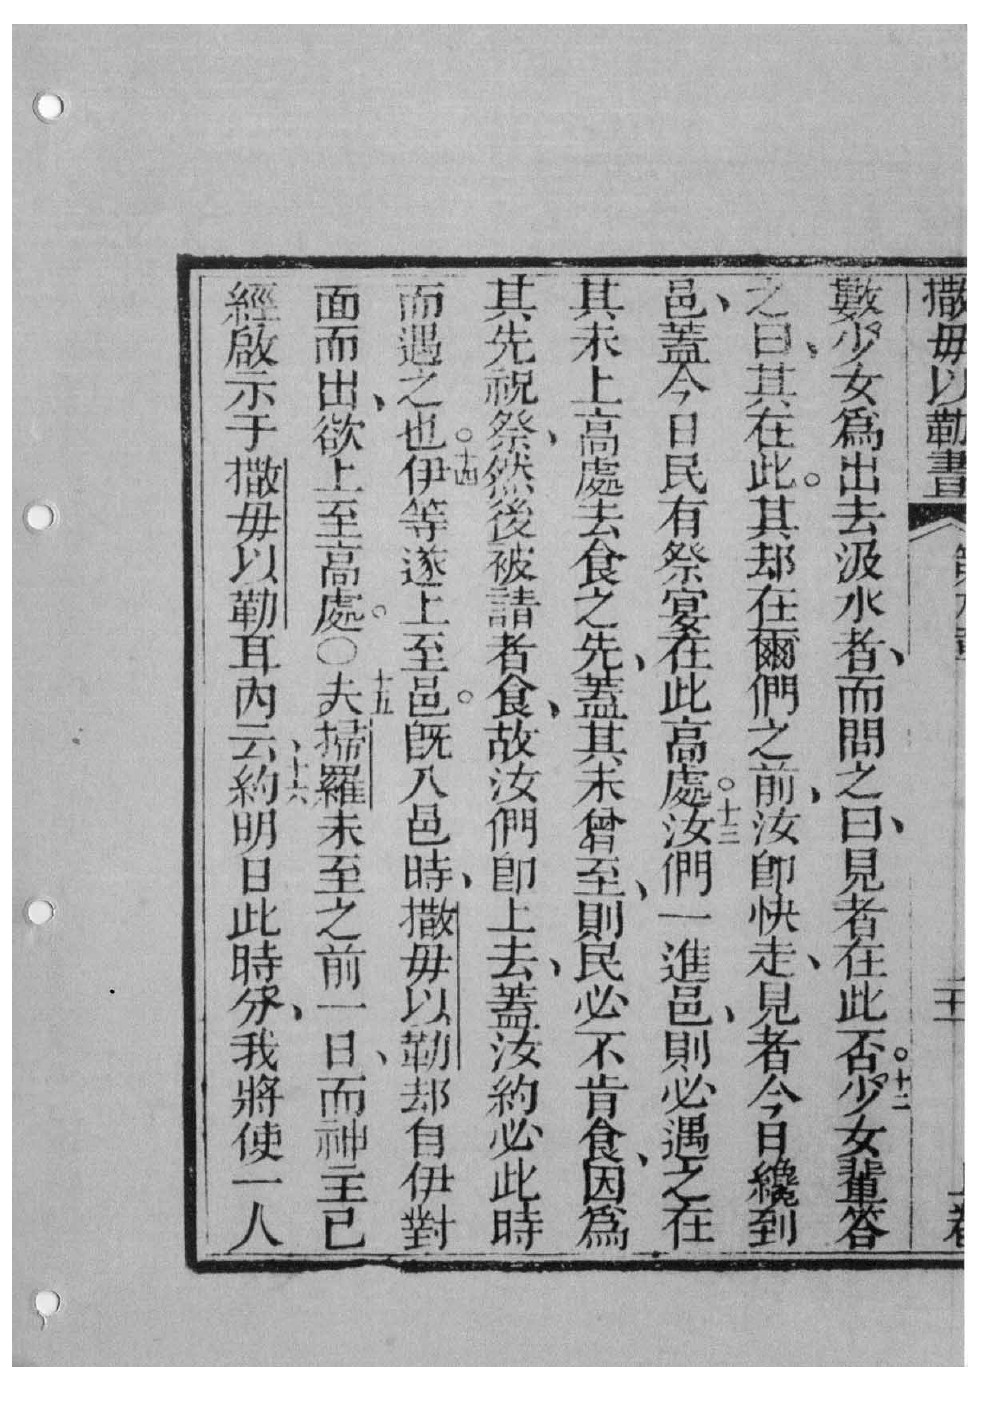 撒毋以勒書
數少女爲出去汲水者、而問之曰、見者在此否。十二少女輩答
之曰、其在此。其却在爾們之前、汝卽快走、見者今日纔到
邑、蓋今日民有祭宴在此高處。十三汝們一進邑、則必遇之在
其未上高處去食之先、蓋其未曾至、則民必不肯食、因爲
其先祝祭、然後被請者食、故汝們卽上去、蓋汝約必此時
而遇之也。十四伊等遂上至邑。旣入邑時、撒毋以勒却自伊對
面而出、欲上至高處。〇十五夫掃羅未至之前一日、而神主已
經啟示于撒毋以勒耳內云、十六約明日此時分、我將使一人